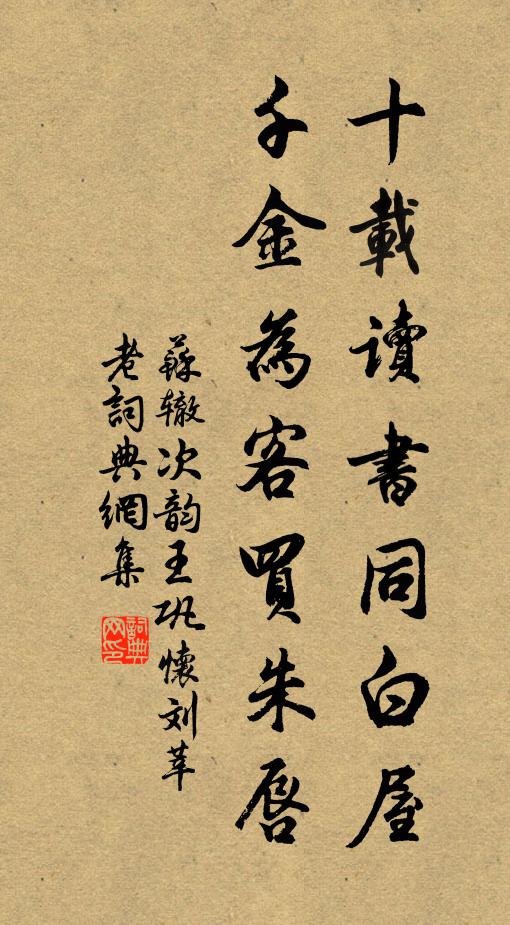 十載讀書同白屋
千金為客買朱唇
蘇轍次韵王巩懷刘莘
老詞典網集
詞典网印